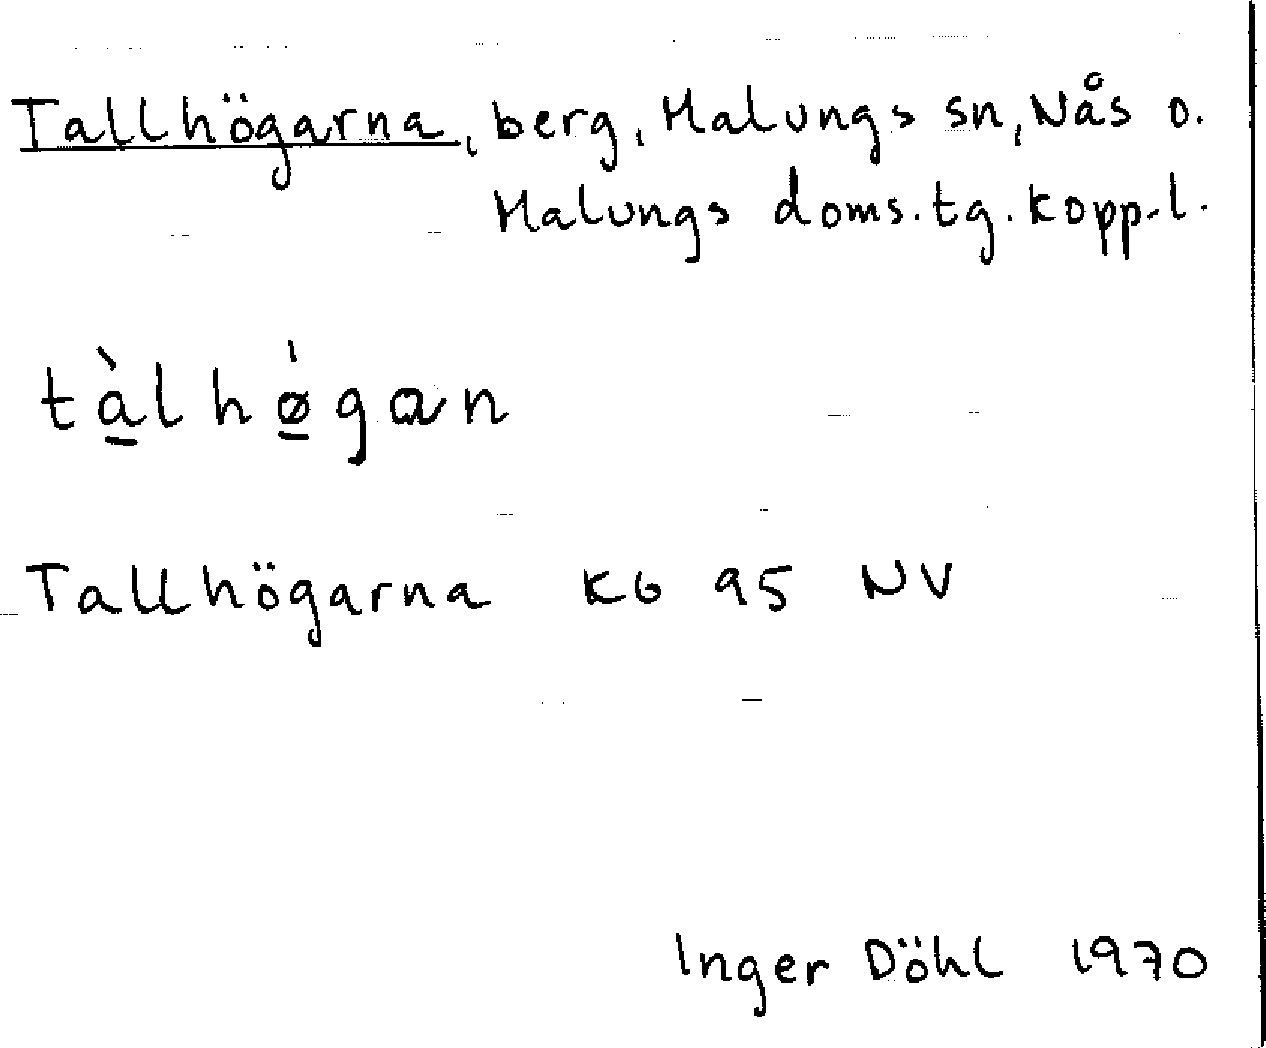 Tallhögarna, berg, Malungs sn, Nås o.
Malungs doms.tg. Kopp.l.
tà̲lhǿ̲gan
Tallhögarna Kb 95 NV
Inger Döhl 1970